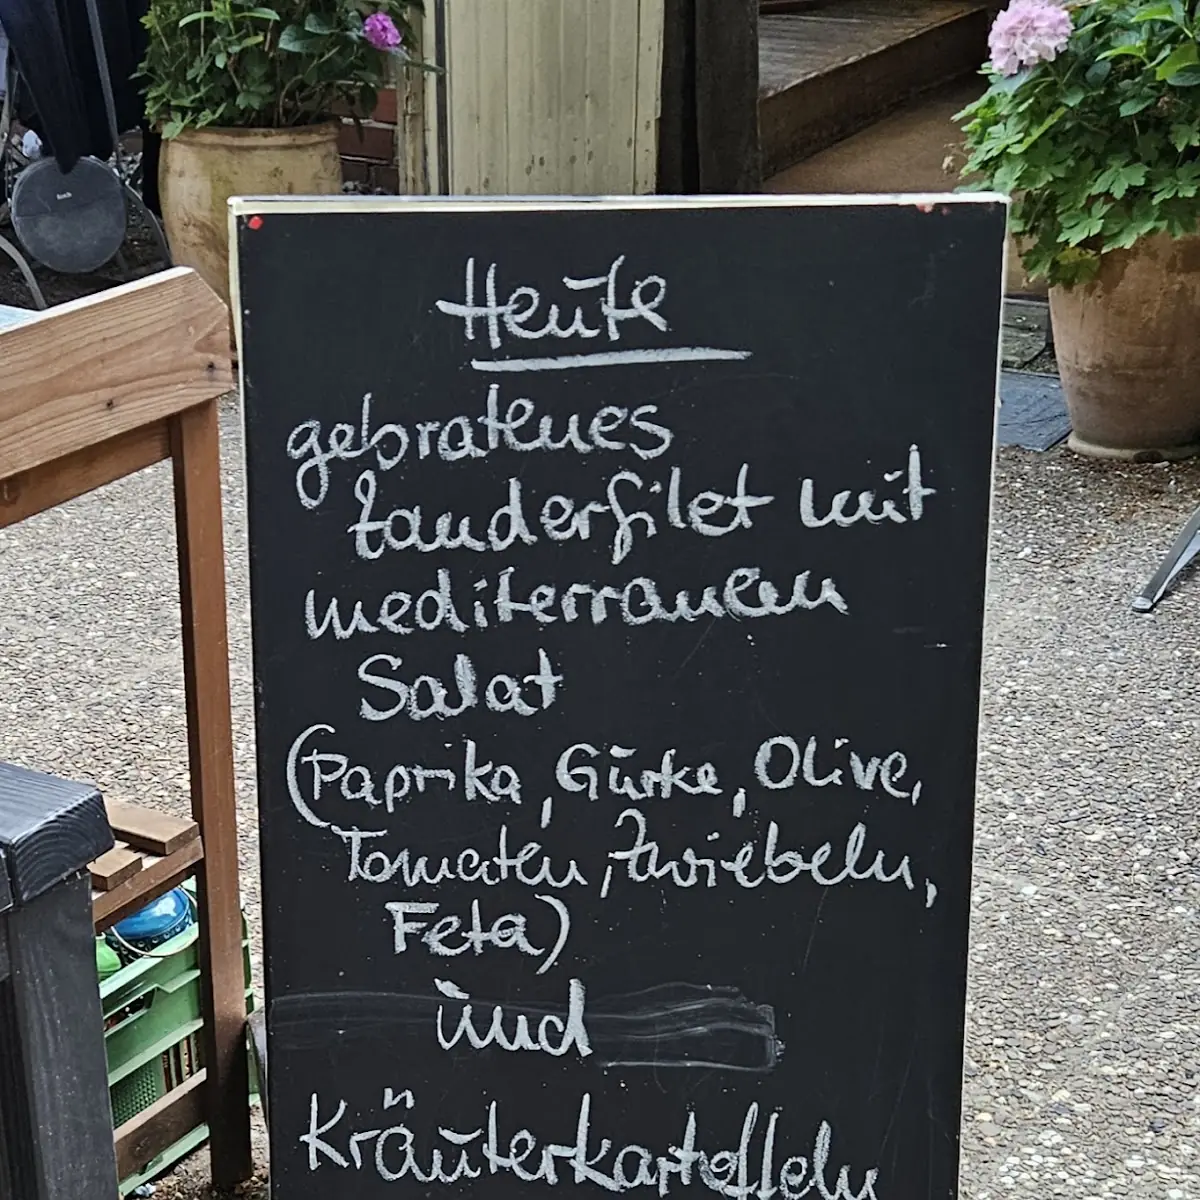 Heute
gebratenes
Zanderfilet mit
mediterranem
Salat
(Paprika, Gurke, Olive,
Tomaten, Zwiebeln,
Feta)
und
Kräuterkartoffeln